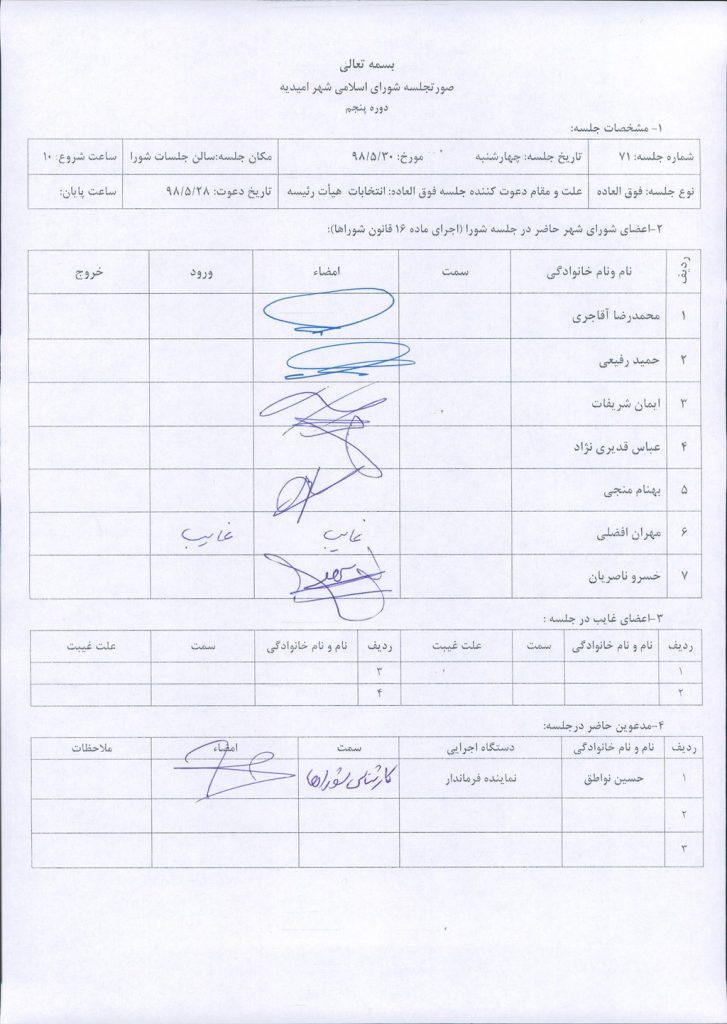 بسمه تعالی
صورتجلسه شورای اسلامی شهر امیدیه
دوره پنجم
۱- مشخصات جلسه:
شماره جلسه: ۷۱ تاریخ جلسه: چهارشنبه مورخ: ۹۸/۵/۳۰ مکان جلسه:سالن جلسات شورا ساعت شروع: ۱۰
نوع جلسه: فوق العاده علت و مقام دعوت کننده جلسه فوق العاده: انتخابات هیأت رئیسه تاریخ دعوت: ۹۸/۵/۲۸ ساعت پایان:
۲-اعضای شورای شهر حاضر در جلسه شورا (اجرای ماده ۱۶ قانون شوراها):
ردیف نام ونام خانوادگی سمت امضاء ورود خروج
۱ محمدرضا آقاجری
۲ حمید رفیعی
۳ ایمان شریفات
۴ عباس قدیری نژاد
۵ بهنام منجی
۶ مهران افضلی غایب غایب
۷ خسرو ناصریان
۳-اعضای غایب در جلسه :
ردیف نام و نام خانوادگی سمت علت غیبت ردیف نام و نام خانوادگی سمت علت غیبت
۱ ۳
۲ ۴
۴-مدعوین حاضر درجلسه:
ردیف نام و نام خانوادگی دستگاه اجرایی سمت امضاء ملاحظات
۱ حسین نواطق نماینده فرماندار کارشناس شوراها
۲
۳